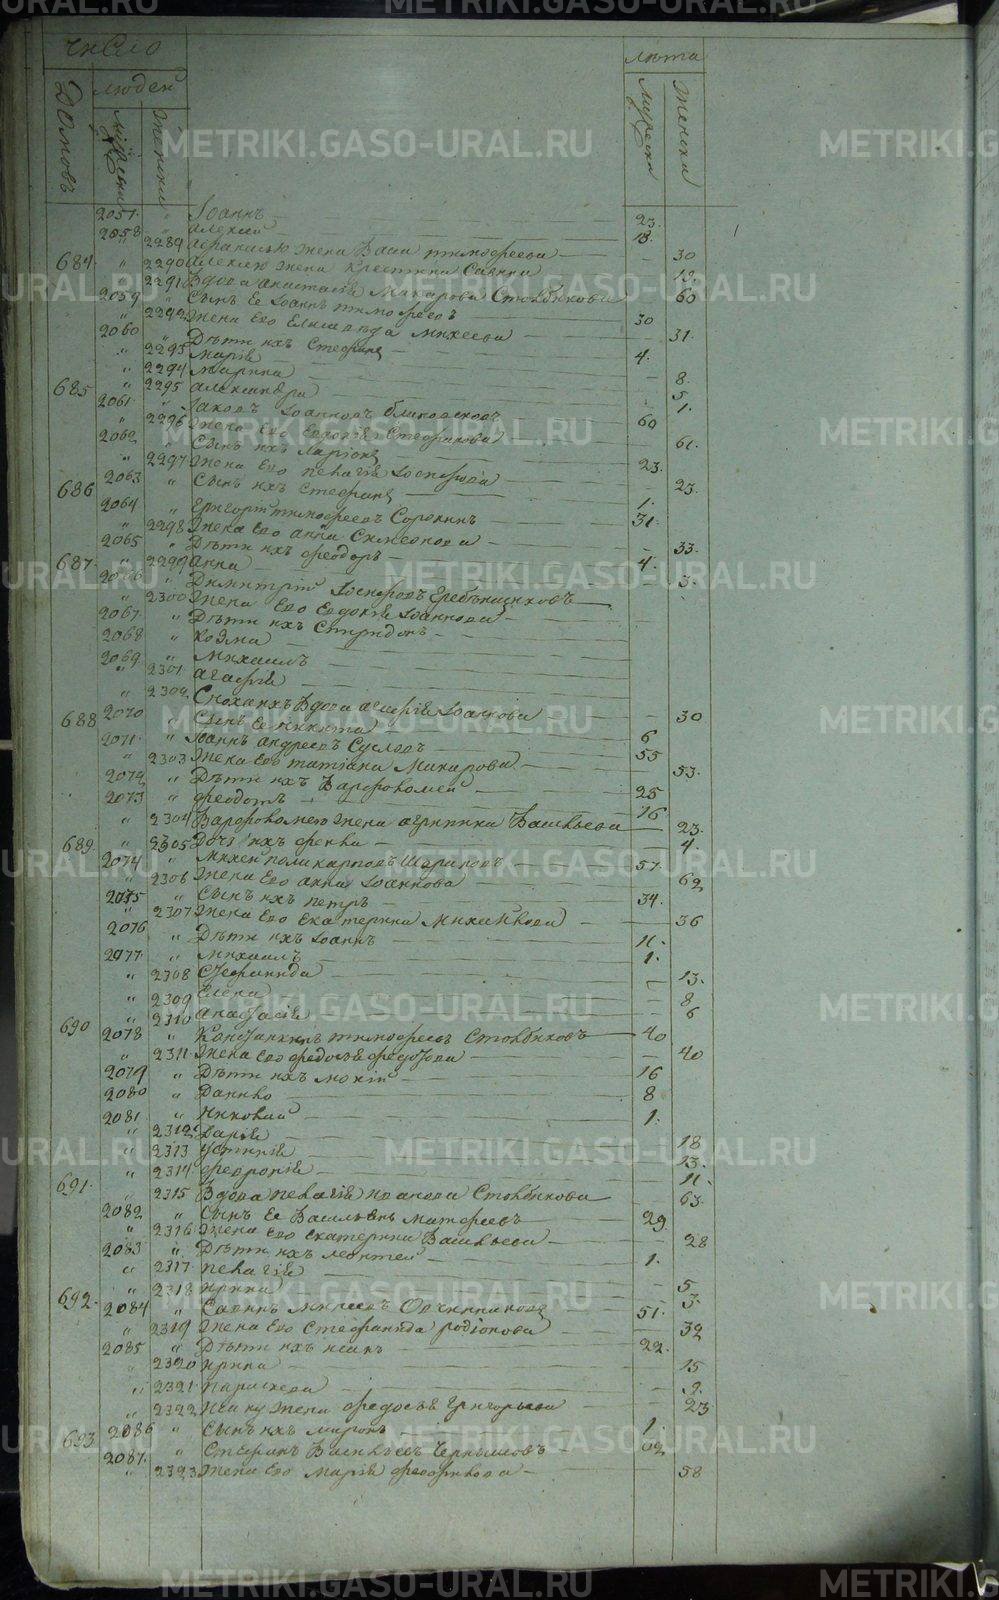 METRIKI.GASO-URAL.RU
число
лѣта
Домовъ
людей
мужеска
женска
мужеска
женска
2057 " Іоаннъ 23
2058 " Алексей 18
" 2289 Афанасью жена Васса Тимофеева 30
" 2290 Алексею жена Крестина Саввина 19
684 " 2291 Вдова Анастасія Макарова Столбикова 60
2059 " Сынъ Ее Іоаннъ Тимофеевъ 30
" 2292 Жена Его Елисавѣда Михеева 31
2060 " Дѣти ихъ Стефанъ 4
" 2293 Марія 8
" 2294 Марина 5
" 2295 Александра 1
685 2061 " Іаковъ Іоанновъ 60
" 2296 Жена Его Евдокія Стефанова 61
2062 " Сынъ ихъ Ларіонъ 23
" 2297 Жена Его Пелагія Іосифова 23
2063 " Сынъ ихъ Стефанъ 1
686 2064 " Григорій Тимофеевъ Сорокинъ 31
" 2298 Жена Его Анна Симеонова 33
2065 " Дѣти ихъ Феодоръ 4
" 2299 Анна 3
687 2066 " Димитрій Іосифовъ Гребенщиковъ
" 2300 Жена Его Евдокія Іоаннова
2067 " Дѣти ихъ Спиридонъ
2068 " Козма
2069 " Михаилъ
" 2301 Агафія
" 2302 Сноха ихъ Вдова Агафія Іоаннова 30
2070 " Сынъ Ее Никита 6
688 2071 " Іоаннъ Андреевъ Сусловъ 55
" 2303 Жена Его Татіана Макарова 53
2072 " Дѣти ихъ Варфоломей 25
2073 " Феодотъ 16
" 2304 Варфоломею жена Агрипина Васильева 23
" 2305 Дочь ихъ Фекла 4
689 2074 " Михей Поликарповъ Шариповъ 57
" 2306 Жена Его Анна Іоаннова 62
2075 " Сынъ ихъ Петръ 34
" 2307 Жена Его Екатерина Михайлова 36
2076 " Дѣти ихъ Іоаннъ 11
2077 " Михаилъ 1
" 2308 Стефанида 13
" 2309 Елена 8
" 2310 Анастасія 6
690 2078 " Константинъ Тимофеевъ Столбиковъ 40
" 2311 Жена Его Федосья Федотова 40
2079 " Дѣти ихъ Мокій 16
2080 " Данило 8
2081 " Николай 1
" 2312 Дарія 18
" 2313 Устинія 13
" 2314 Февронія 11
691 " 2315 Вдова Пелагія Иванова Столбикова 63
2082 " Сынъ Ее Василій Матфеевъ 29
" 2316 Жена Его Екатерина Васильева 28
2083 " Дѣти ихъ Леонтей 1
" 2317 Пелагія 5
" 2318 Ирина 3
692 2084 " Савинъ Михеевъ Овчинниковъ 51
" 2319 Жена Его Стефанида Родіонова 32
2085 " Дѣти ихъ Исакъ 22
" 2320 Ирина 15
" 2321 Параскева 9
" 2322 Исаку жена Федосья Григорьева 23
2086 " Сынъ ихъ Миронъ 1
693 2087 " Стефанъ Васильевъ Чернышовъ 62
" 2323 Жена Его Марія Феофилова 58